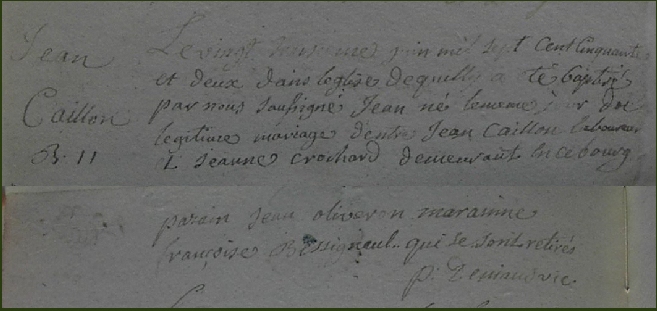 Jean
Caillon
B. 11
Le vingt deuxieme juin mil sept cent cinquante
et deux dans leglise dequilly a été baptisé
par nous soussigné Jean né le meme jour du
legitime mariage dentre Jean Caillon laboureur
et Jeanne crochard demeurant en ce bourg
parain Jean oliveron maraine
françoise Bessignault qui se sont retirés
p.